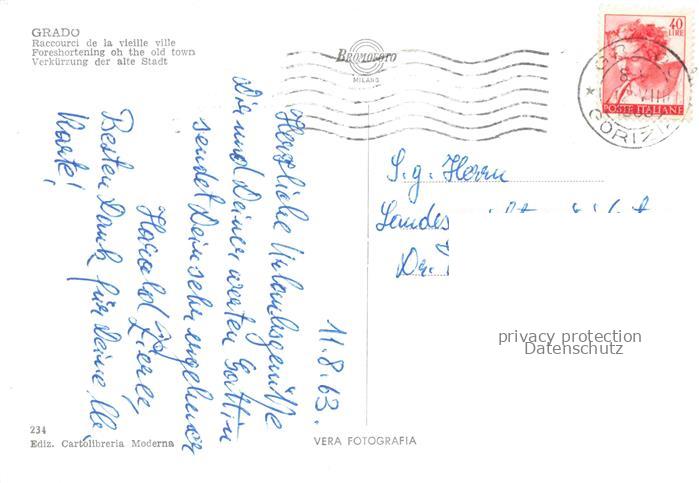 GRADO
Raccourci de la vieille ville
Foreshortening oh the old town
Verkürrung der alte Stadt
BROMOFOTO
MILANO
40
LIRE
POSTE ITALIANE
GORIZIA
11.8.63.
Herzliche Urlaubsgrüße
Dir und Deiner werten Gattin
sendet Dein sehr ergebener
Harald
Besten Dank für Deine lb.
Karte!
S.g. Herrn
Landes
Dr.
privacy protection
Datenschutz
234
Ediz. Cartolibreria Moderna
VERA FOTOGRAFIA